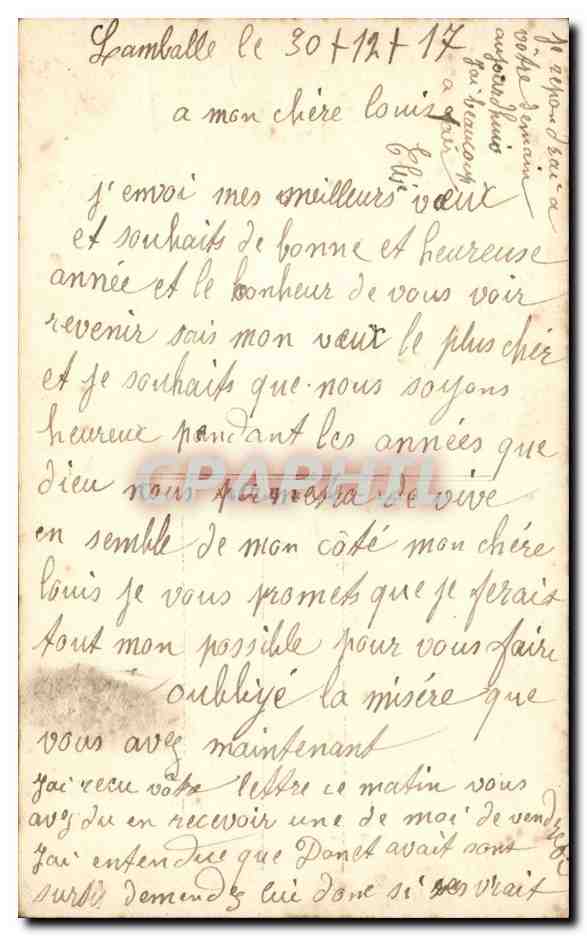 Lamballe le 30+12+17
a mon chère louis
j'envoi mes meilleurs vœux
et souhaits de bonne et heureuse
année et le bonheur de vous voir
revenir sais mon vœux le plus chèr
et je souhaits que nous soyons
heureux pendant les années que
dieu nous permetra de vive
en semble de mon côté mon chére
louis je vous promets que je ferais
tout mon possible pour vous faire
oubliyé la misére que
vous avez maintenant
j'ai recu vôtre lettre ce matin vous
avez du en recevoir une de moi de vendredi
j'ai entendue que Danet avait sont
sursis demendez lui donc si ses vrait
je repondrai a
vôtre demain
aujourdhuis
j'ai beaucoup
a fair
Elise
CPAPHIL